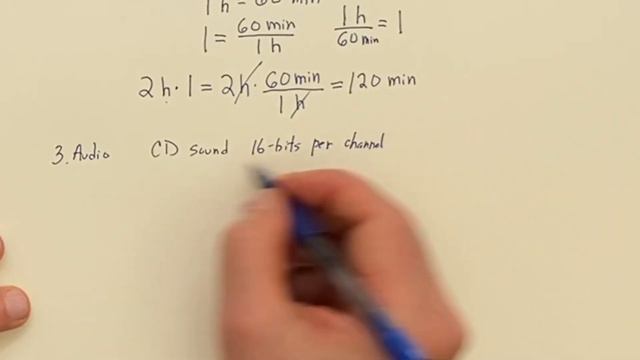 1 h = 60 min
1 = 60 min / 1 h    1 h / 60 min = 1
2 h · 1 = 2 h · 60 min / 1 h = 120 min
3. Audio CD Sound 16-bits per channel